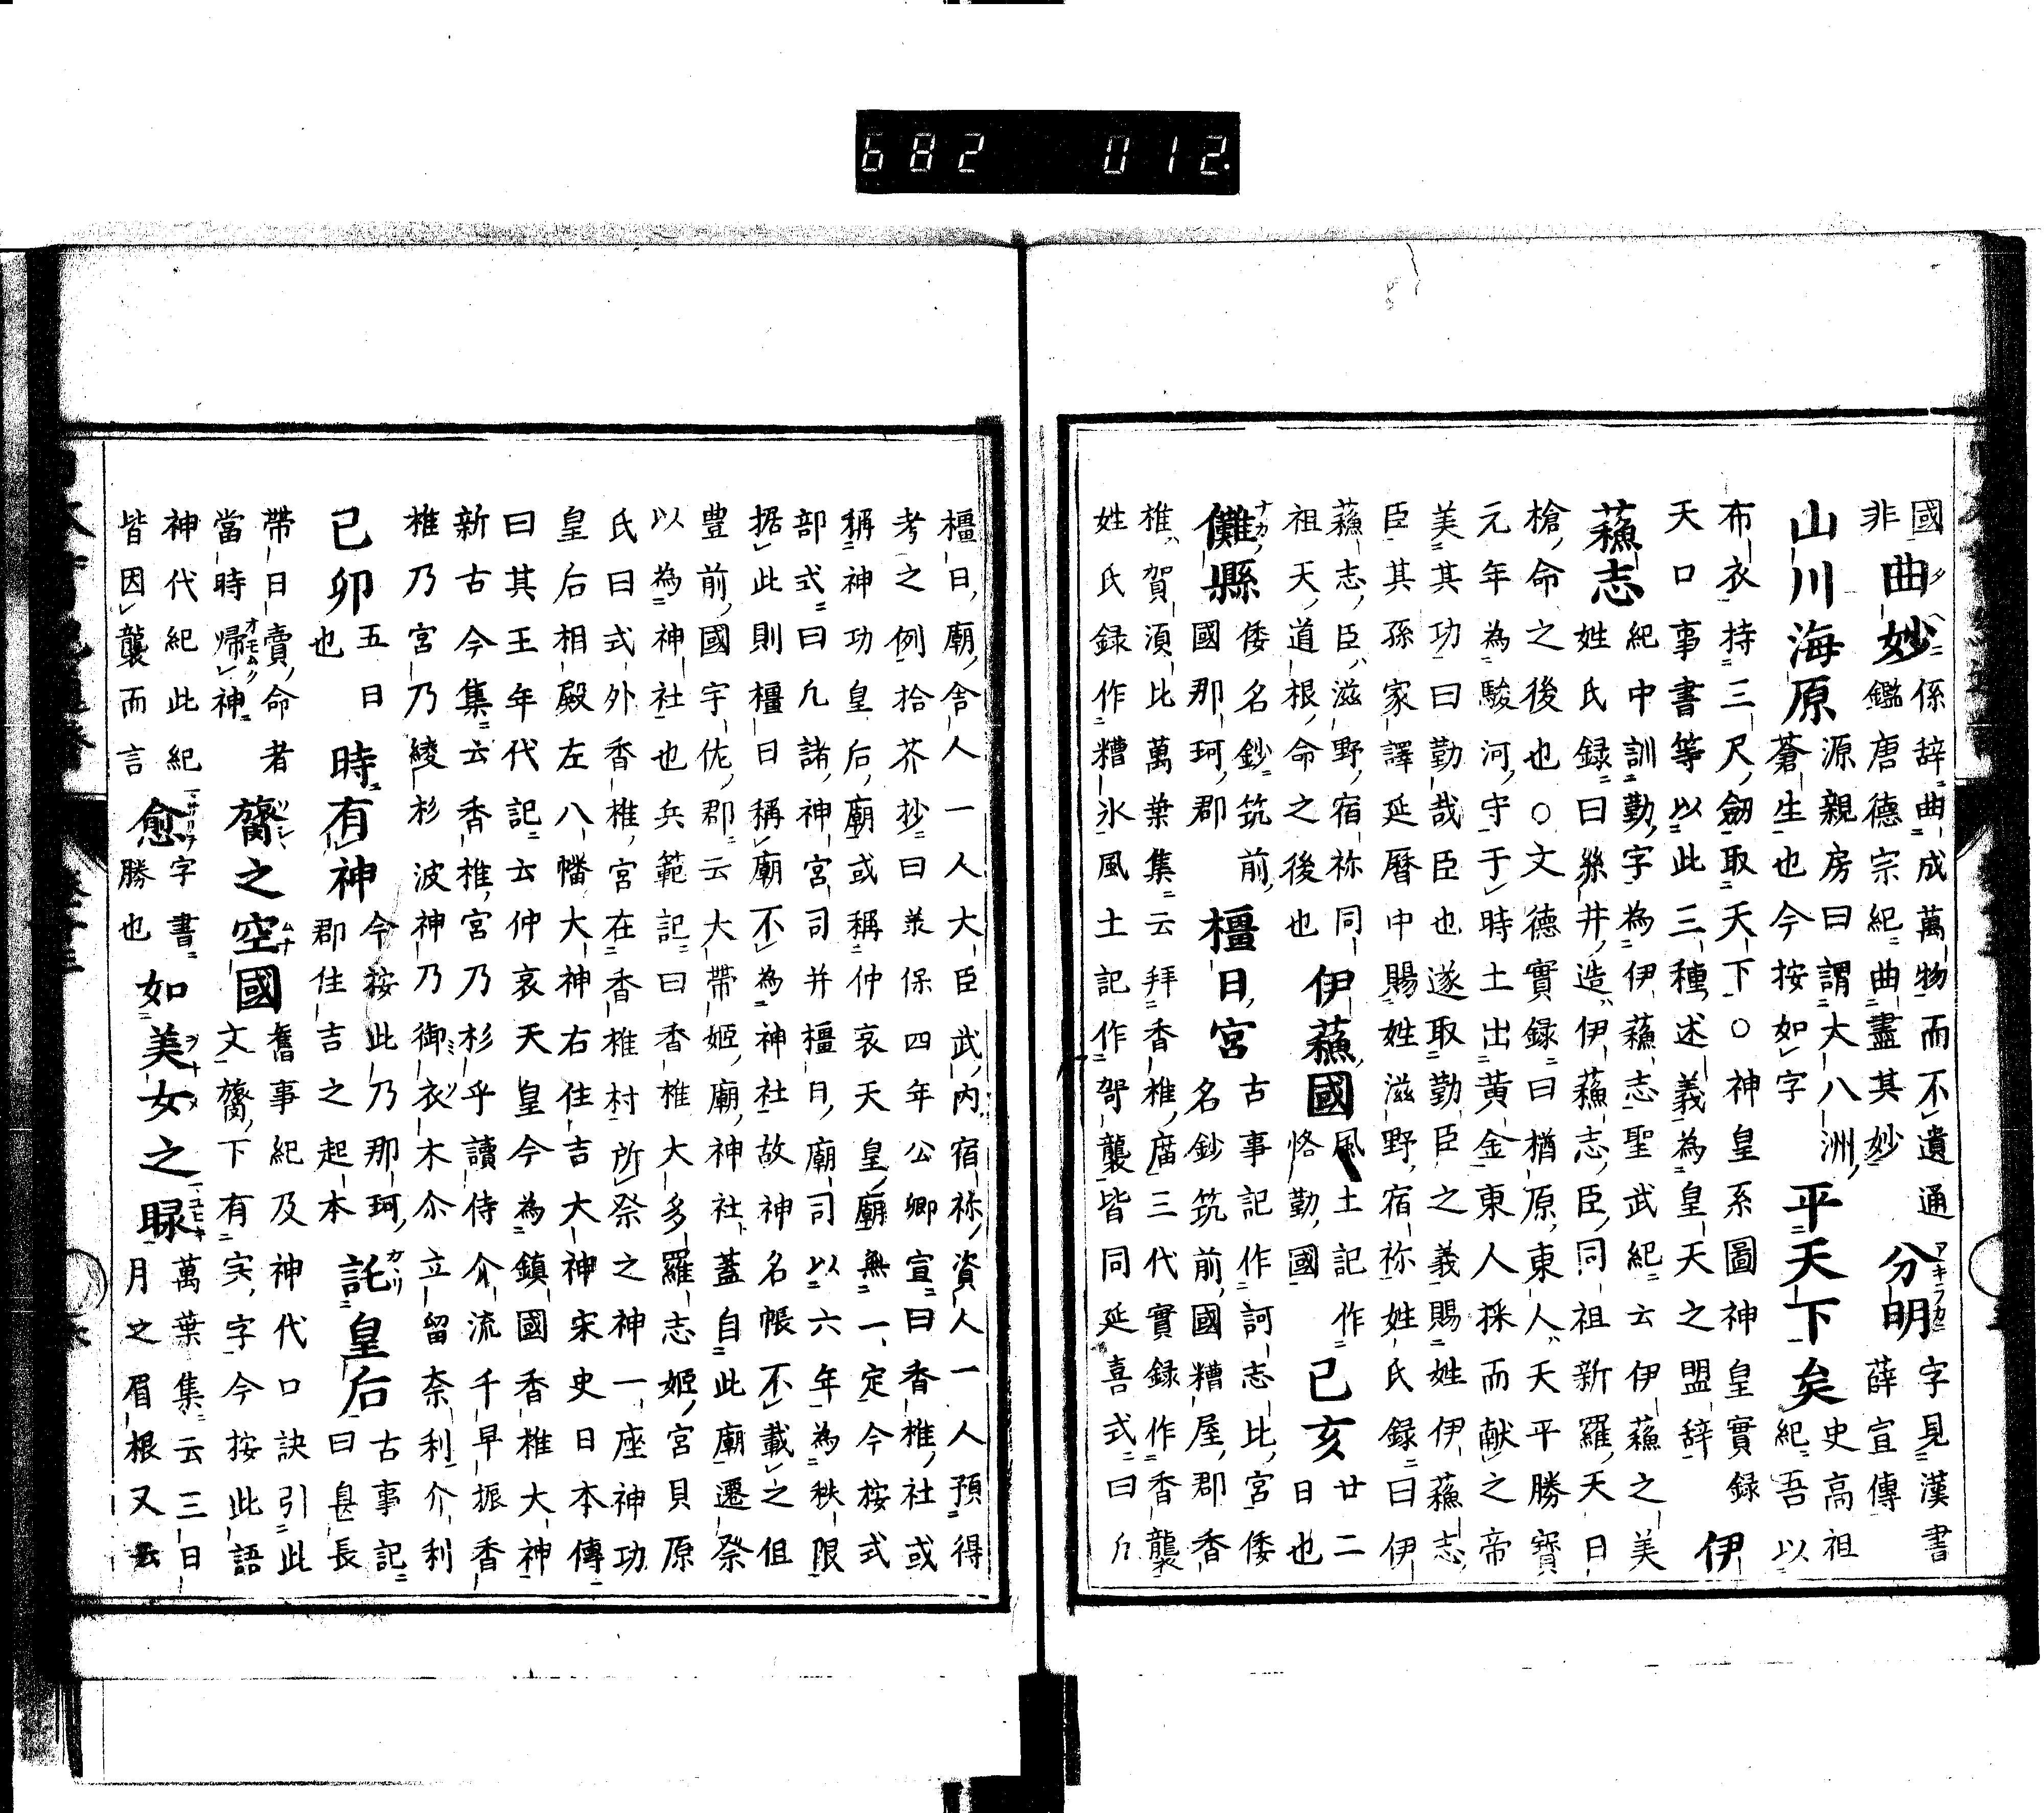 國非曲妙係辞曲成萬物而不遺通鑑唐德宗紀曲盡其妙分明字見漢書薛宣傳
山川海原源親房曰謂大八洲蒼生也今按如字平天下矣史高祖紀吾以
布衣持三尺劒取天下○神皇系圖神皇實録
天口事書等以此三種述義為皇天之盟辞伊
蘓志紀中訓勤字為伊蘓志聖武紀云伊蘓之美
姓氏録曰絲井造伊蘓志臣同祖新羅天日
槍命之後也○文德實録曰楢原東人天平勝寳
元年為駿河守于時土出黄金東人採而献之帝
美其功曰勤哉臣也遂取勤臣之義賜姓伊蘓志
臣其孫家譯延暦中賜姓滋野宿祢姓氏録曰伊
蘓志臣滋野宿祢同祖天道根命之後也伊蘓國風土記作恪勤國己亥廿二日也
儺縣倭名鈔筑前國那珂郡橿日宮古事記作訶志比宮倭名鈔筑前國糟屋郡香
椎賀湏比萬葉集云拜香椎庿三代實録作香襲
姓氏録作糟氷風土記作哿襲皆同延喜式曰凡
橿日廟舎人一人大臣武内宿祢資人一人預得
考之例拾芥抄曰羕保四年公卿宣曰香椎社或
稱神功皇后廟或稱仲哀天皇廟無一定今按式
部式曰凡諸神宮司并橿日廟司以六年為秩限
据此則橿日稱廟不為神社故神名帳不載之但
豊前國宇佐郡云大帶姫廟神社蓋自此廟遷祭
以為神社也兵範記曰香椎大多羅志姫宮貝原
氏曰式外香椎宮在香椎村所祭之神一座神功
皇后相殿左八幡大神右住吉大神宋史日本傳
曰其王年代記云仲哀天皇今為鎮國香椎大神
新古今集云香椎宮乃杉乎讀侍介流千早振香
椎乃宮乃綾杉波神乃御衣木尓立留奈利介利
己卯五日也時有神今按此乃那珂郡住吉之起本託皇后古事記曰息長
帶日賣命者當時帰神膂之空國舊事紀及神代口訣引此文膂下有宍字今按此語
神代紀此紀皆因襲而言愈字書勝也如美女之睩萬葉集云三日月之眉根又云
682 012